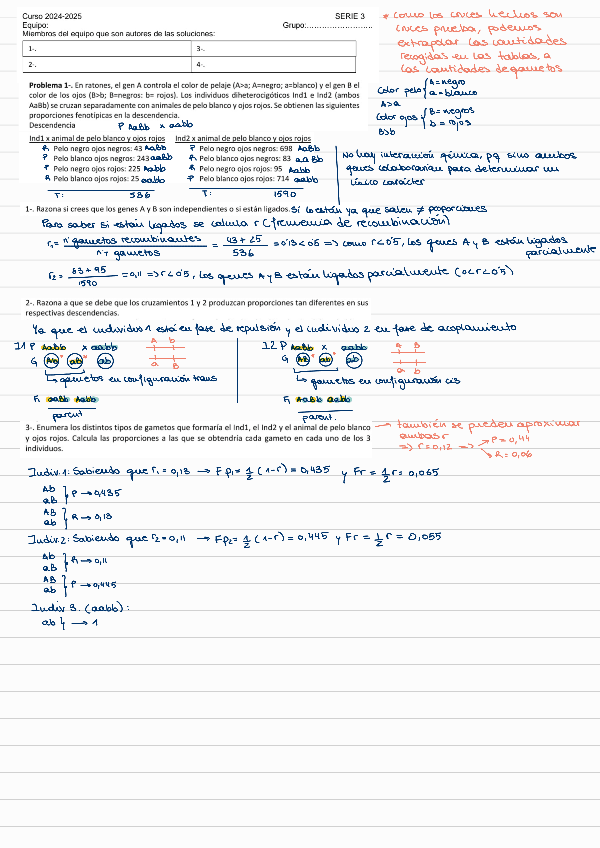 Curso 2024-2025 SERIE 3
Equipo: Grupo:...........................
Miembros del equipo que son autores de las soluciones:
1-. 3-.
2-. 4-.
* como los cruces hechos son
cruces prueba, podemos
extrapolar las cantidades
recogidas en las tablas, a
las cantidades de gametos
Problema 1-. En ratones, el gen A controla el color de pelaje (A>a; A=negro; a=blanco) y el gen B el
color de los ojos (B>b; B=negros: b= rojos). Los individuos diheterocigóticos Ind1 e Ind2 (ambos
AaBb) se cruzan separadamente con animales de pelo blanco y ojos rojos. Se obtienen las siguientes
proporciones fenotípicas en la descendencia.
Color pelo A=negro
a=blanco
A>a
Color ojos B=negros
b=rojos
B>b
Descendencia P AaBb x aabb
Ind1 x animal de pelo blanco y ojos rojos
R Pelo negro ojos negros: 43 AaBb
P Pelo blanco ojos negros: 243 aaBb
P Pelo negro ojos rojos: 225 Aabb
R Pelo blanco ojos rojos: 25 aabb
T: 536
Ind2 x animal de pelo blanco y ojos rojos
P Pelo negro ojos negros: 698 AaBb
R Pelo blanco ojos negros: 83 aaBb
R Pelo negro ojos rojos: 95 Aabb
P Pelo blanco ojos rojos: 714 aabb
T: 1590
No hay interacción génica, pq sino ambos
genes colaborarían para determinar un
único carácter
1-. Razona si crees que los genes A y B son independientes o si están ligados. Sí lo están ya que salen ≠ proporciones
Para saber si están ligados se calcula r (frecuencia de recombinación)
r₁ = nº gametos recombinantes / nº gametos = 43+25 / 536 = 0'13 < 0'5 => como r<0'5, los genes A y B están ligados
parcialmente
r₂ = 83+95 / 1590 = 0,11 => r<0'5, los genes A y B están ligados parcialmente (0<r<0'5)
2-. Razona a que se debe que los cruzamientos 1 y 2 produzcan proporciones tan diferentes en sus
respectivas descendencias.
Ya que el individuo 1 está en fase de repulsión y el individuo 2 en fase de acoplamiento
I1 P AaBb x aabb A b
G Ab aB ab a B
gametos en configuración trans
F₁ aaBb Aabb
parent
I2 P AaBb x aabb A B
G AB ab ab a b
gametos en configuración cis
F₁ AaBb aabb
parent.
3-. Enumera los distintos tipos de gametos que formaría el Ind1, el Ind2 y el animal de pelo blanco
y ojos rojos. Calcula las proporciones a las que se obtendría cada gameto en cada uno de los 3
individuos.
también se pueden aproximar
ambas r
=> r=0,12 => P=0,44
R=0,06
Indiv. 1: Sabiendo que r₁=0,13 → Fp₁=1/2 (1-r)=0,435 y Fr=1/2 r=0,065
Ab
aB P → 0,435
AB
ab R → 0,13
Indiv. 2: Sabiendo que r₂=0,11 → Fp₂=1/2 (1-r)=0,445 y Fr=1/2 r=0,055
Ab
aB R → 0,11
AB
ab P → 0,445
Indiv 3. (aabb):
ab → 1